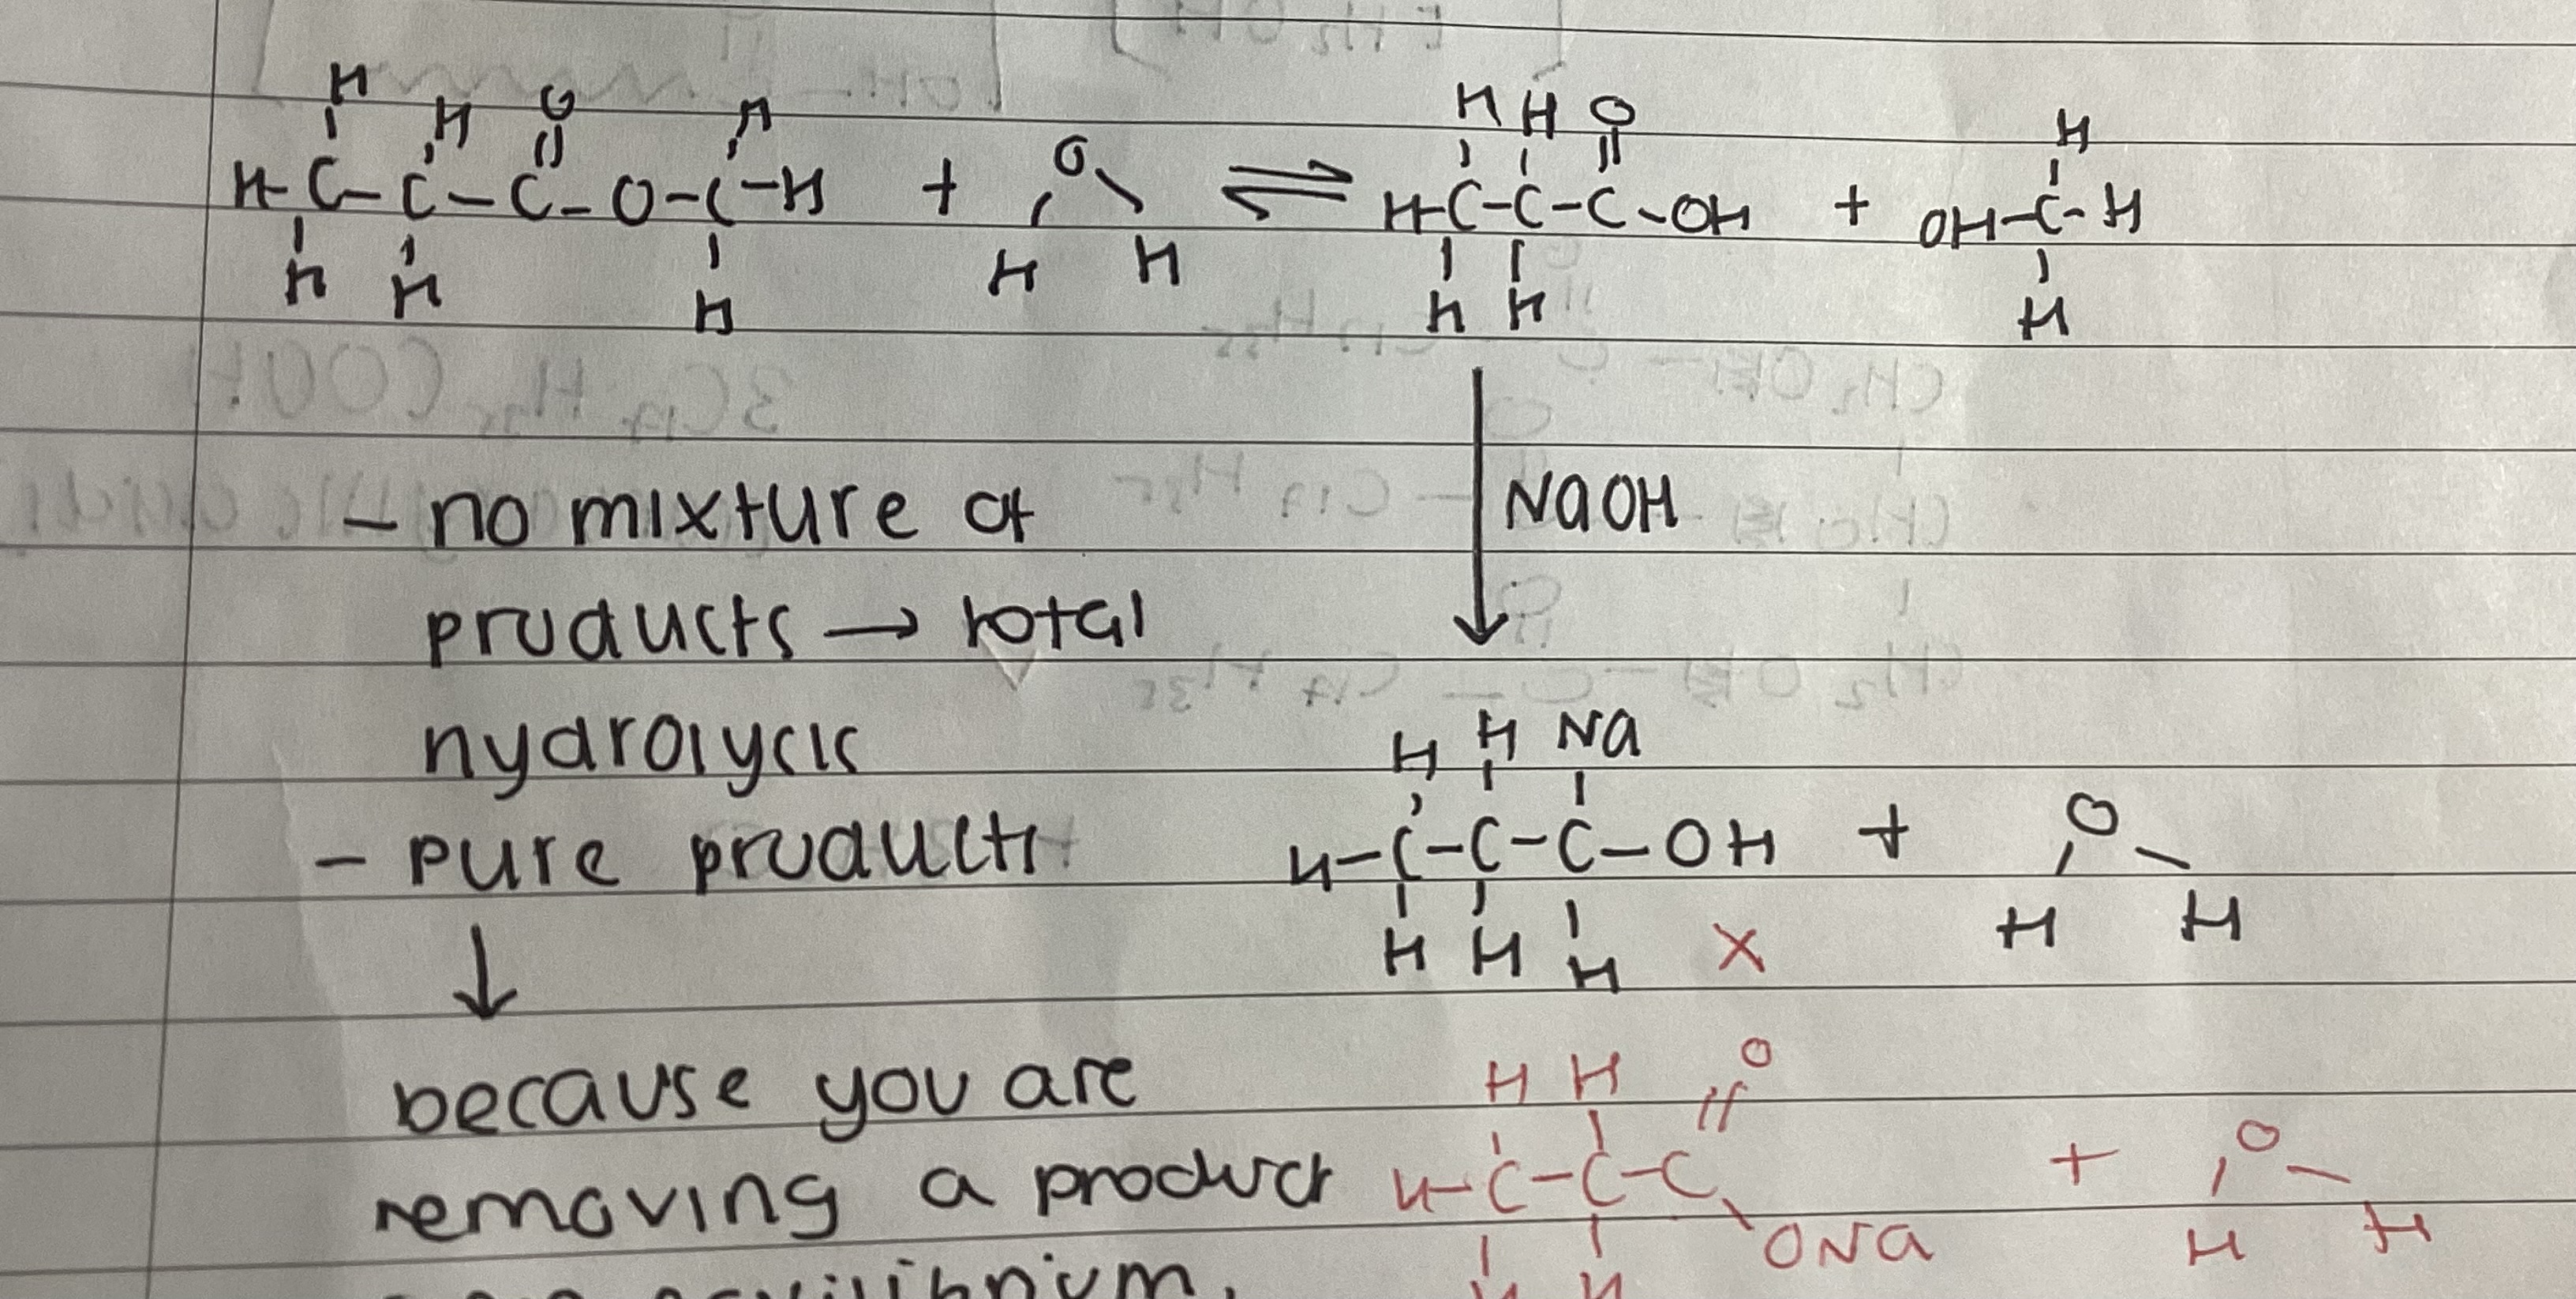 H H O H
H-C-C-C-O-C-H + O ⇌ H-C-C-C-OH + OH-C-H
H H H H H H H H
NaOH
- no mixture of
products → total
hydrolysis
- pure products
↓
because you are
removing a product
equilibrium.
H H Na
H-C-C-C-OH + O
H H H X H H
H H O
H-C-C-C + O
ONa H H
H H